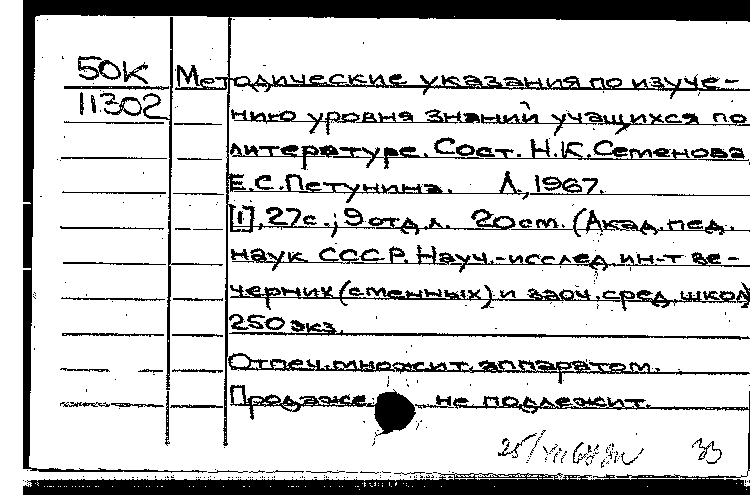 50К Методические указания по изуче-
11302 нию уровня знаний учащихся по
литературе. Сост. Н.К.Семенова
Е.С.Петунина. Л.,1967.
[1],27с.; 9 отд.л. 20 см. (Акад.пед.
наук СССР. Науч.-исслед.ин-т ве-
черних (сменных) и заоч.сред.школ)
250 экз.
Отпеч.множит.аппаратом.
Продаже не подлежит.
33